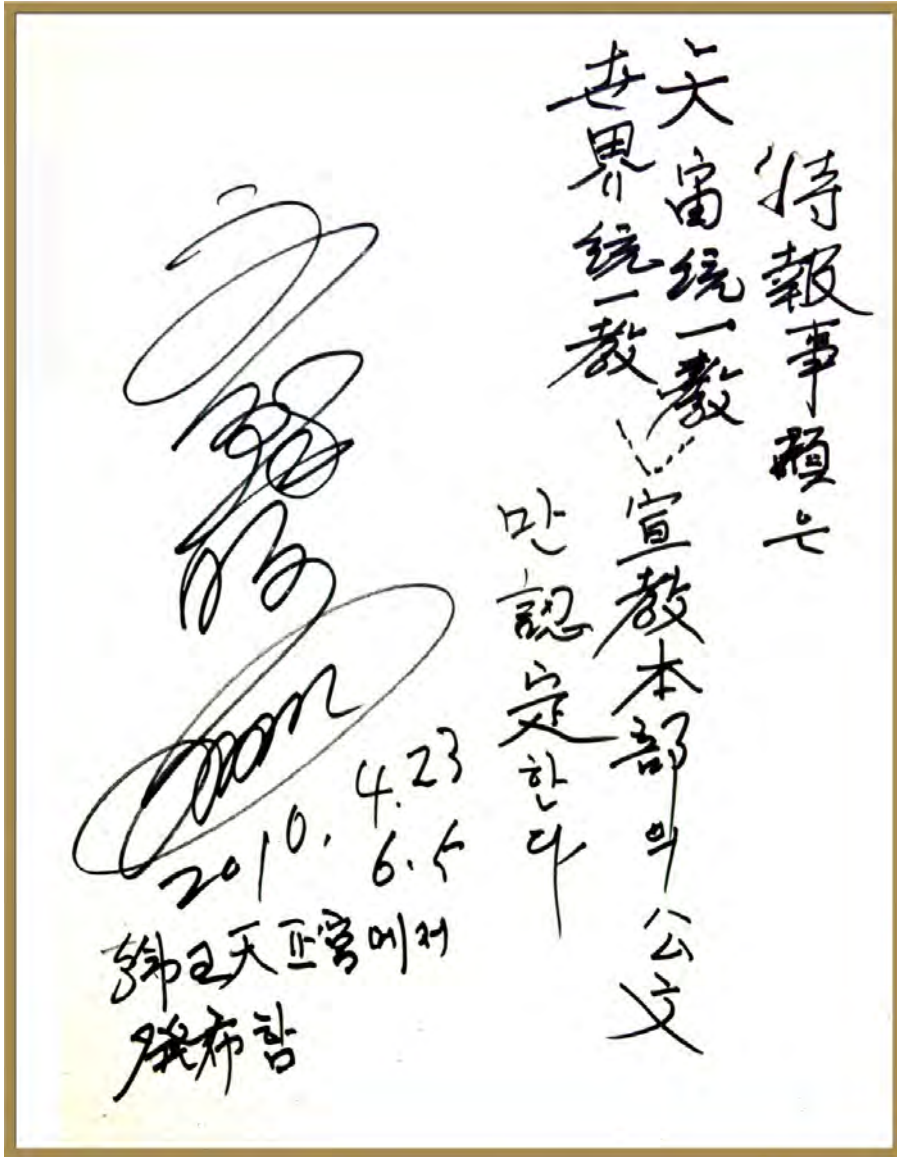 特報事項은
天宙統一教
世界統一教
宣教本部의 公文
만 認定한다
2010. 4.23
6.5
天正宮에서
發布함